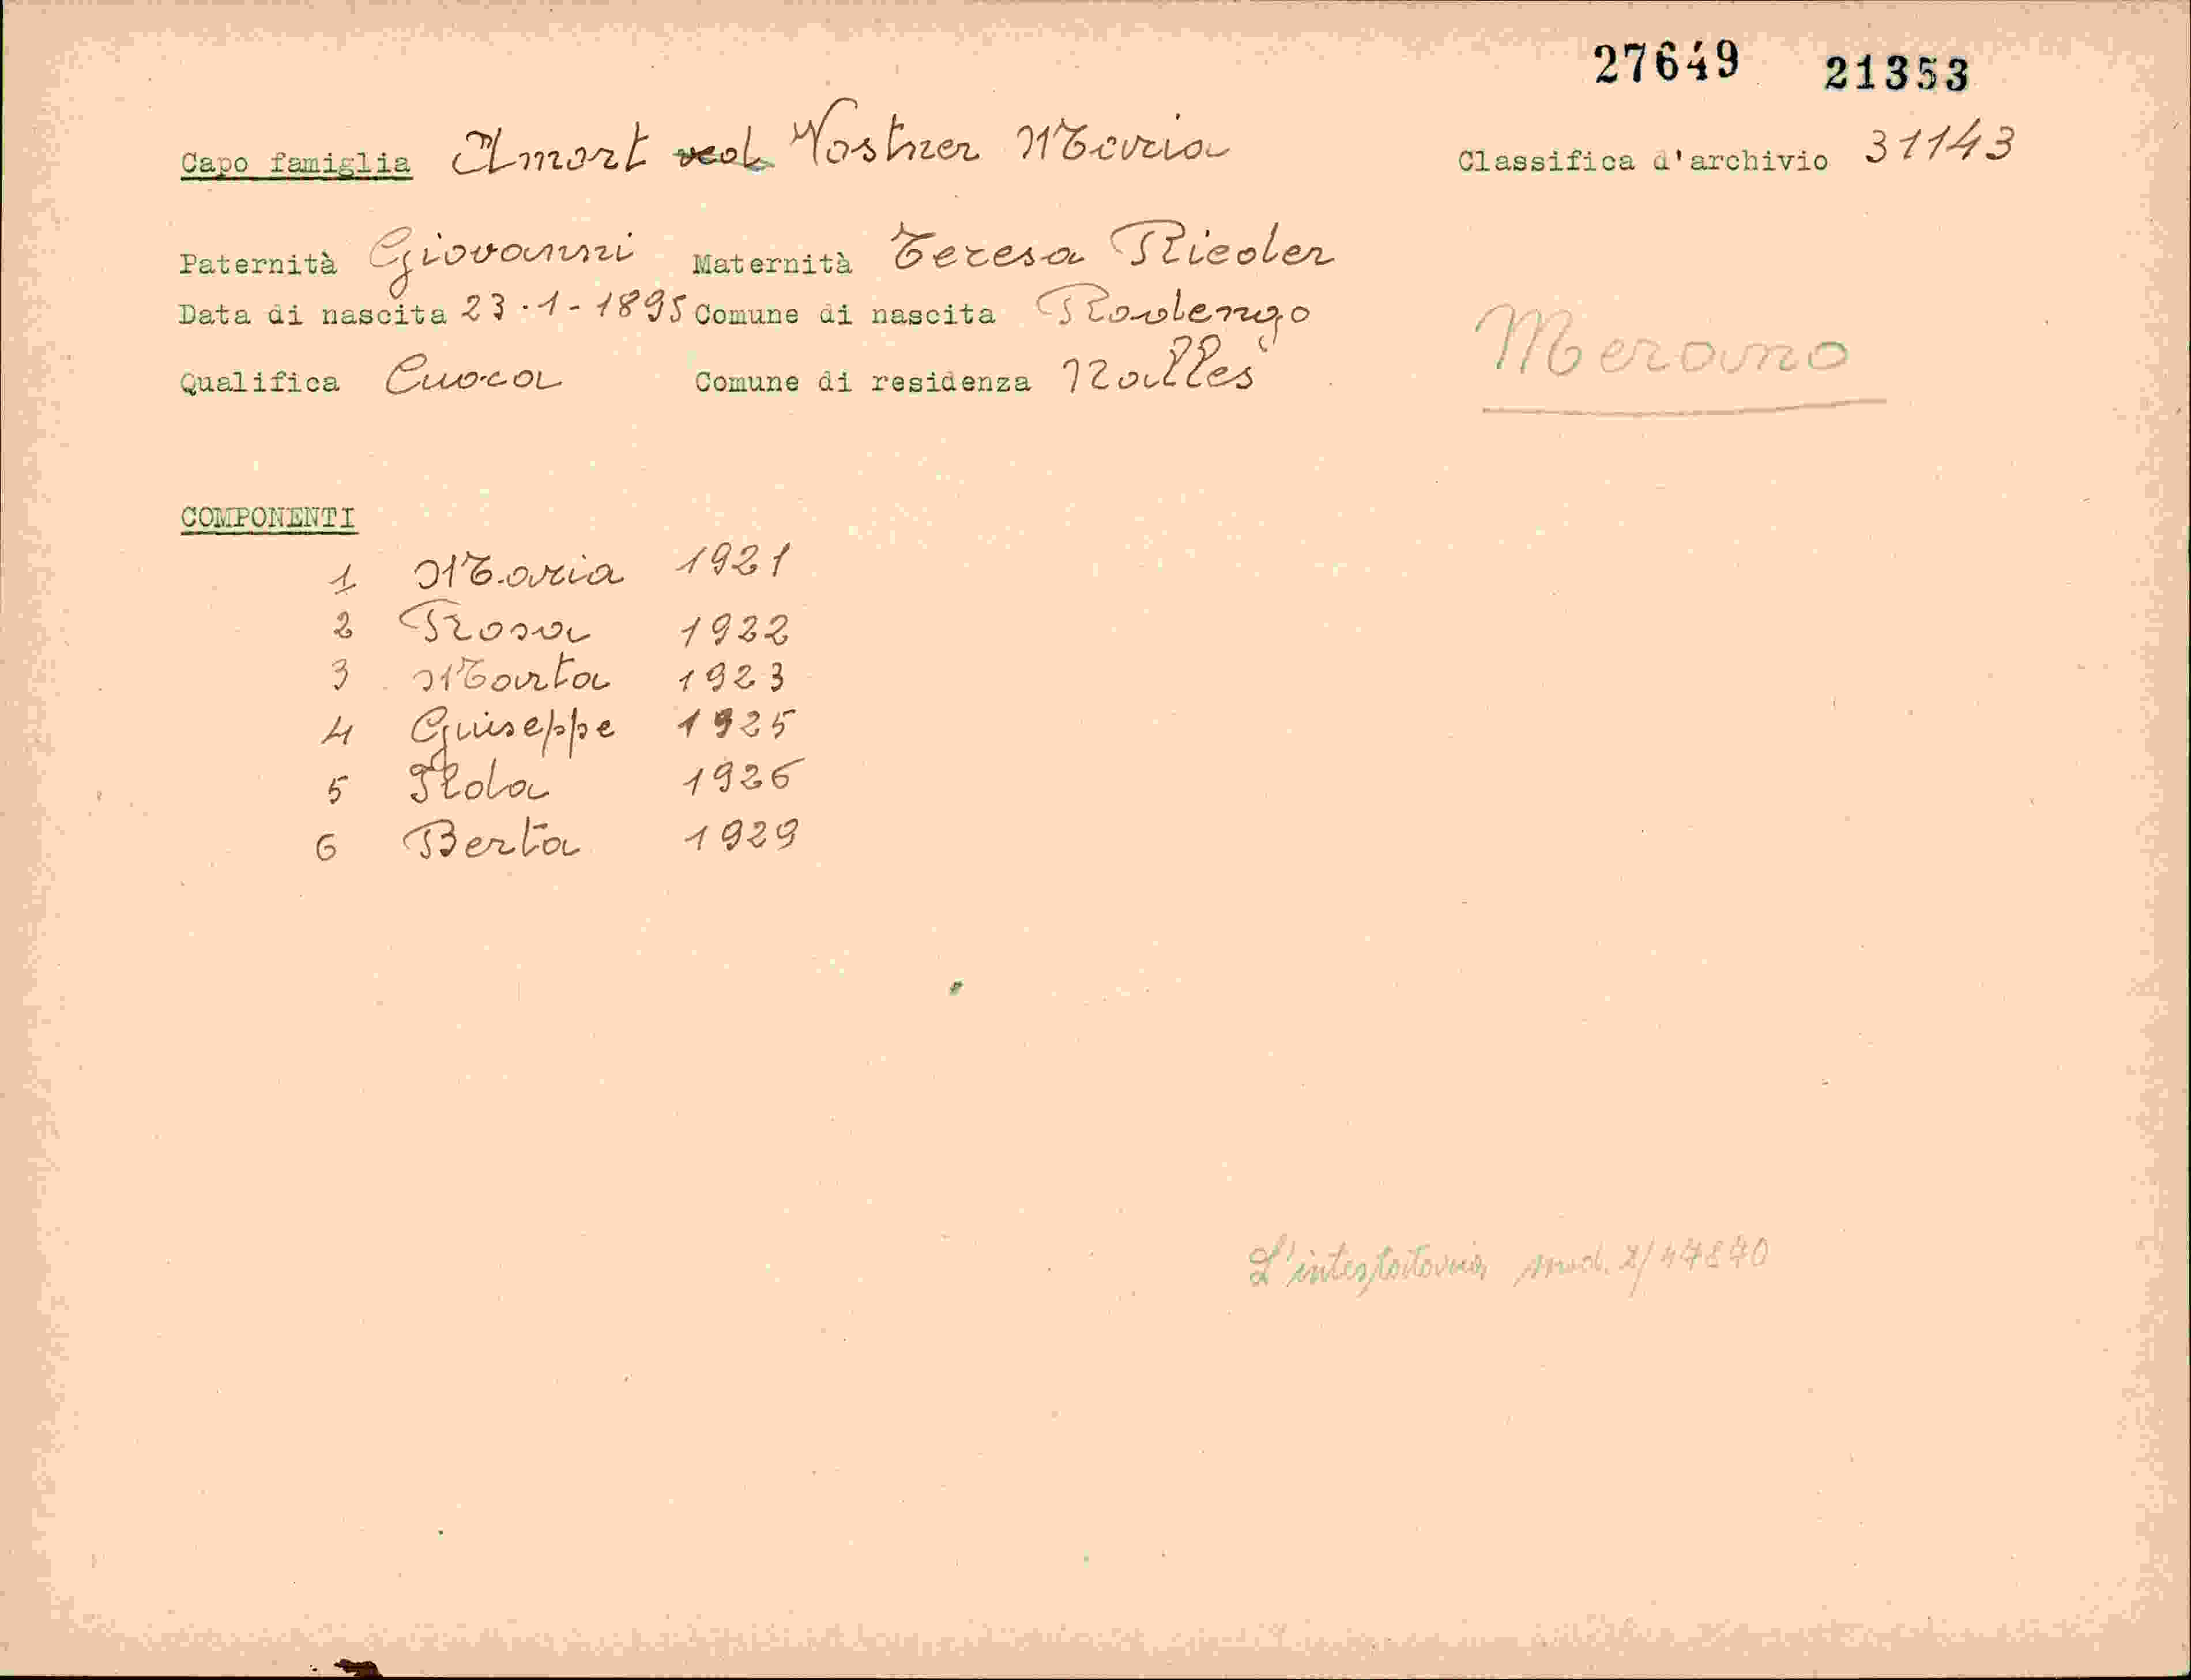 27649 21353
Capo famiglia Amort ved. Nostner Maria Classifica d'archivio 31143
Paternità Giovanni Maternità Teresa Rieder
Data di nascita 23-1-1895 Comune di nascita Rodengo
Merano
Qualifica Cuoca Comune di residenza Nalles
COMPONENTI
1 Maria 1921
2 Rosa 1922
3 Marta 1923
4 Guiseppe 1925
5 Ida 1926
6 Berta 1929
L'intestataria mod.